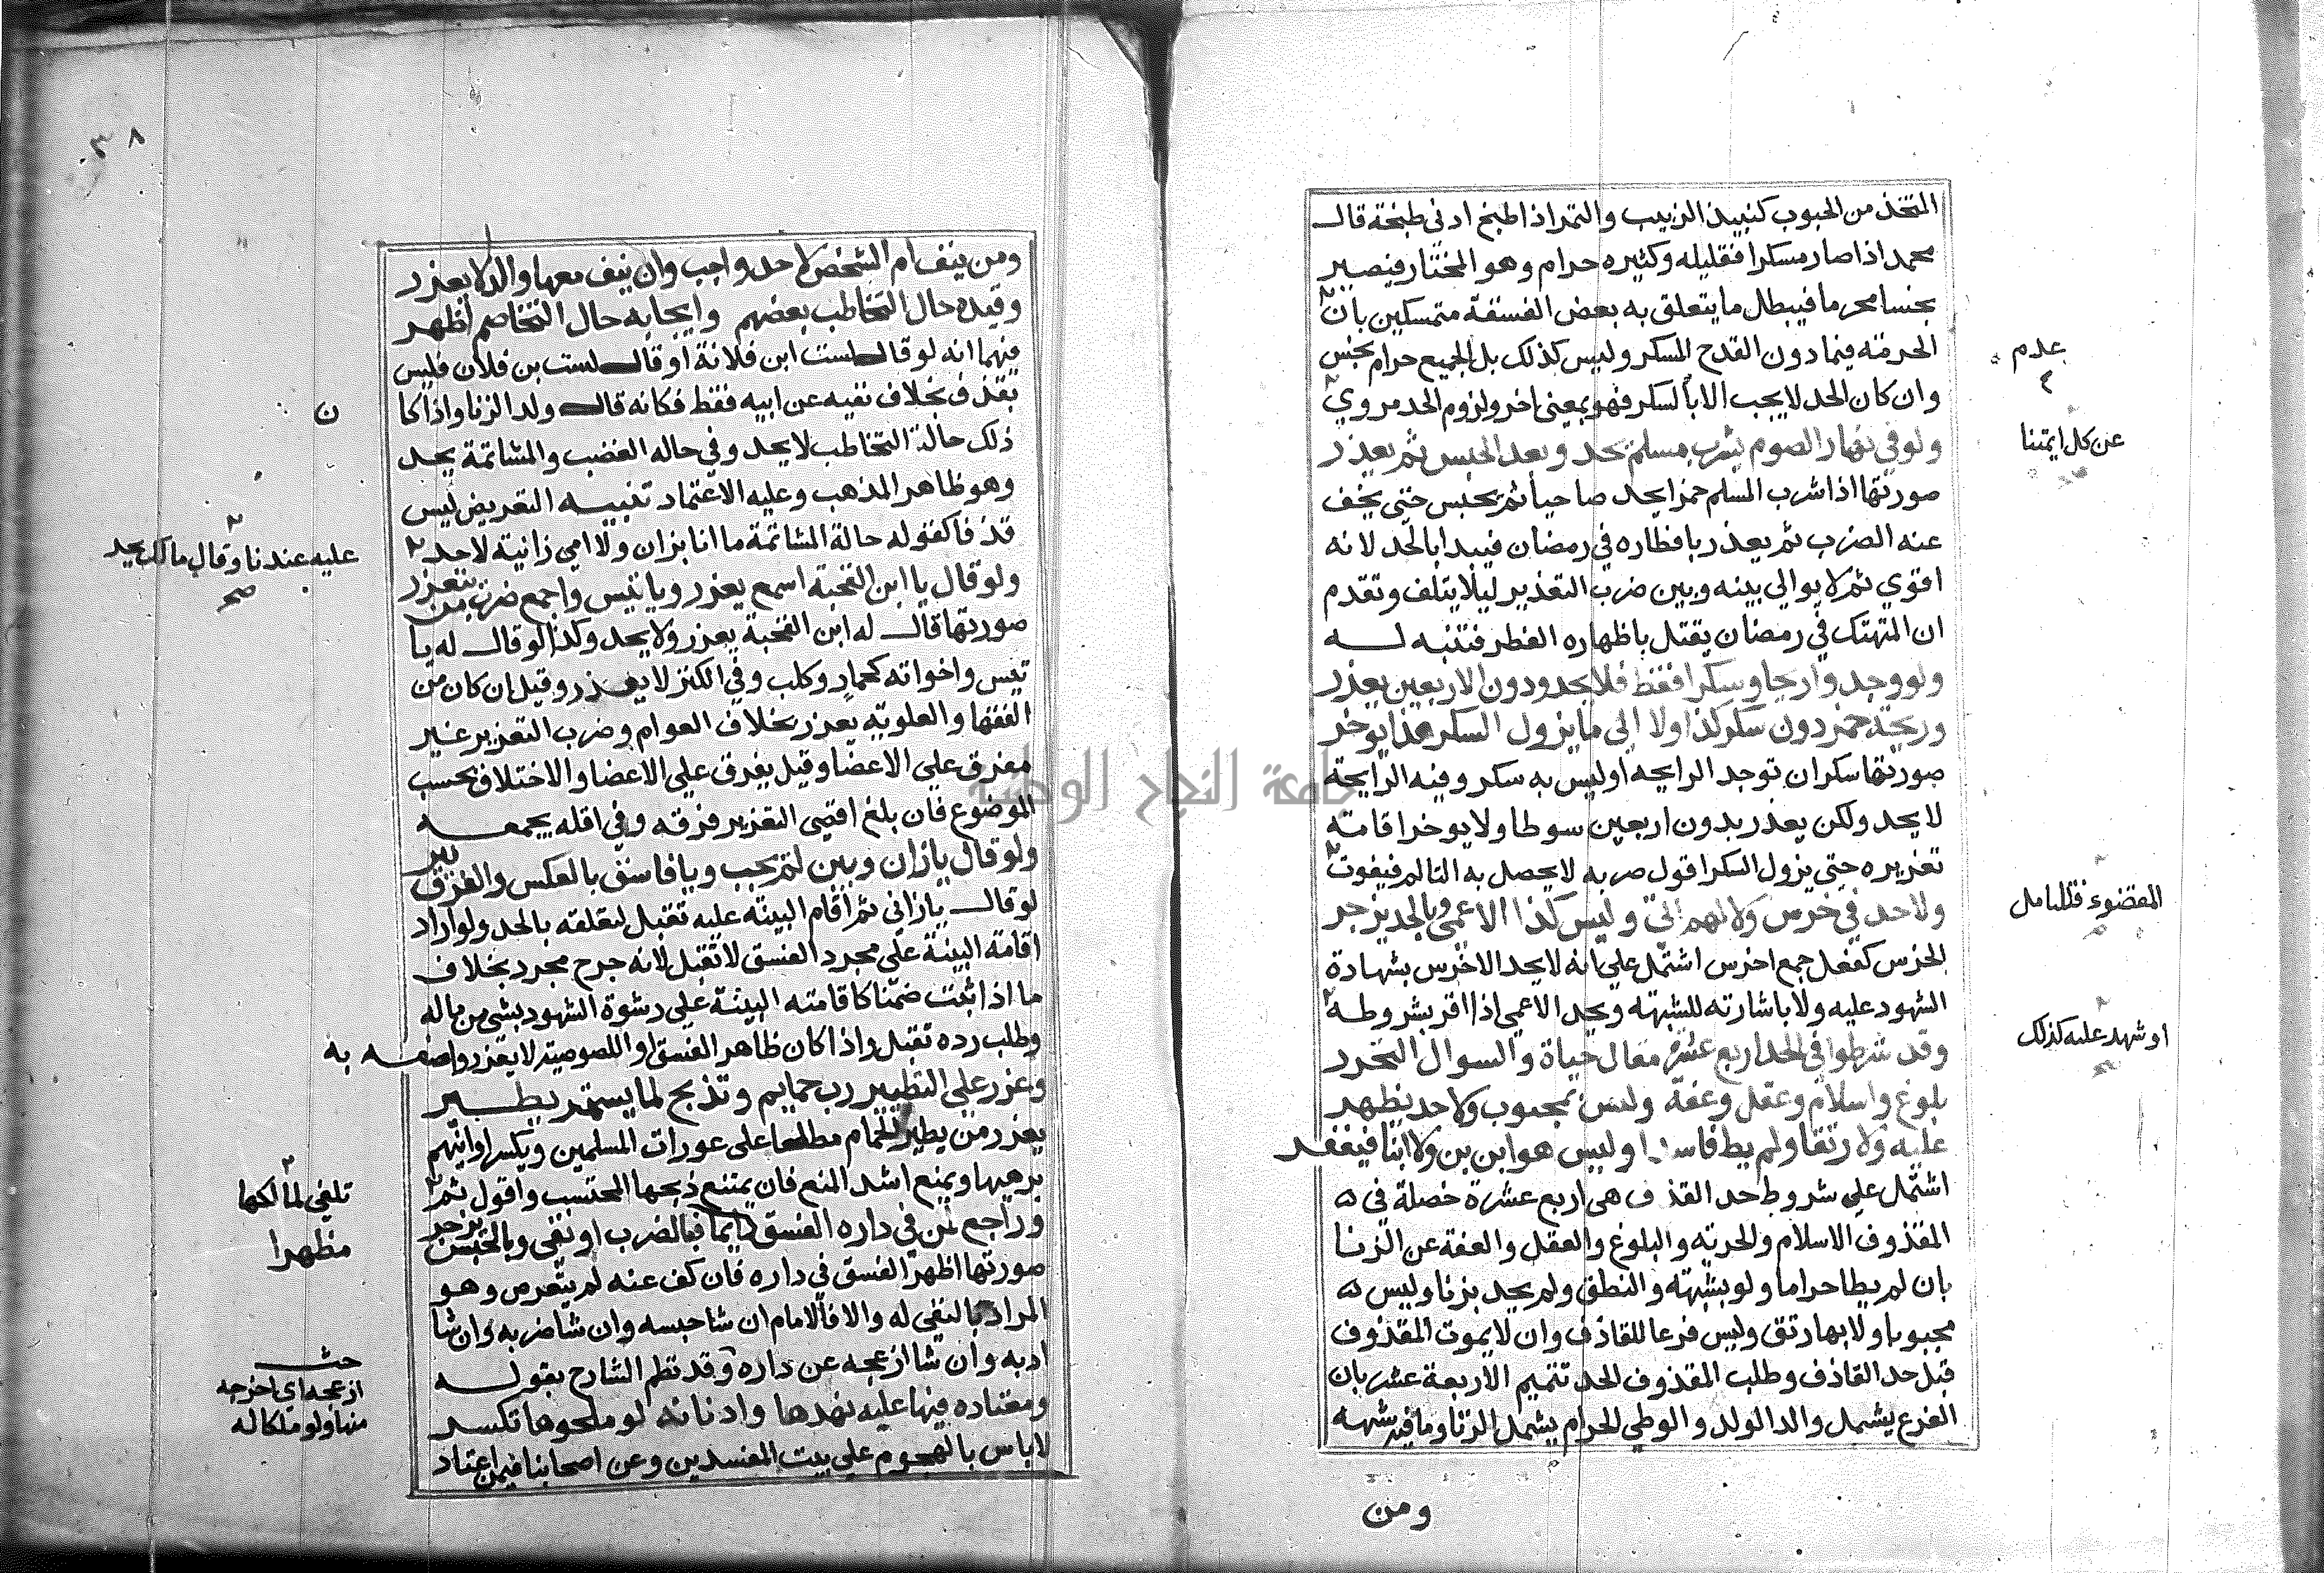 المتخذ من الحبوب كنبيذ الزبيب والتمر اذا طبخ ادني طبخة قال
محمد اذا صار مسكرا فقليله وكثيره حرام وهو المختار فيصير
نجسا محرما فيبطل ما يتعلق به بعض الفسقة متمسكين بان
الحرمة فيما دون القدح المسكر وليس كذلك بل الجميع حرام نجس
عدم
وان كان الحد لا يجب الا بالسكر فهو بمعني اخر ولزوم الحد مروي
عن كل ايمتنا
صح
ولو في نهار الصوم يشرب مسلم يحد وبعد الحبس ثم يعذر
صورتها اذا شرب المسلم خمرا يحد صاحيا ثم يحبس حتي يخف
عنه الضرب ثم يعذر بافطاره في رمضان فيبدا بالحد لانه
اقوي ثم لا يوالي بينه وبين ضرب التعذير ليلا يتلف وتقدم
ان المتهتك في رمضان يقتل باظهاره الفطر فتنبه له
ولو وجدوا ريحا وسكرا فقط فلا يحد ودون الاربعين يعذر
وريحة خمر دون سكر كذا ولا الي ما يزول السكر هذا يوخر
صورتها سكران توجد الرايحه او ليس به سكر وفيه الرايحة
لا يحد ولكن يعذر بدون اربعين سوطا ولا يوخر اقامته
تعزيره حتي يزول السكر اقول ضربه لا يحصل به التالم فيفوت
المقضوء فتامل
ولا حد في خرس ولا لهم الي وليس كذا الاعمي وبالحد يزجر
الخرس كقفل جمع اخرس اشتمل علي انه لا يحد الاخرس بشهادة
الشهود عليه ولا باشارته للشبهة ويحد الاعمي اذا اقر بشروطه
او شهد عليه كذلك
صح
وقد شرطوا في الحد اربع عشرة مقال حياة والسوال التحرر
بلوغ واسلام وعقل وعفة وليس بمجبوب ولا حد يظهر
عليه ولا رتقا ولم يط فاسدا وليس هو ابن بن ولا ابنا فيغفر
اشتمل علي شروط حد القذف هي اربع عشرة خصلة في
المقذوف الاسلام والحرية والبلوغ والعقل والعفة عن الزنا
بان لم يطا حراما ولو بشبهة والنطق ولم يحد بزنا وليس
مجبوبا ولا بها رتق وليس فرعا للقاذف وان لا يموت المقذوف
قبل حد القاذف وطلب المقذوف الحد تتميم الاربعة عشر بان
الفرع يشمل والد الولد والوطي الحرام يشمل الزنا وما فيه شبهة
ومن
٣٨
ومن ينف ام الشخص لا حد واجب وان ينف معها والدا لا يعذر
وقيده حال التخاطب بعضهم وايجابه حال التخاصم اظهر
فيهما انه لو قال لست ابن فلانة او قال لست بن فلان فليس
بقذف بخلاف نفيه عن ابيه فقط فكانه قال ولد الزنا واذا كا
ن
ذلك حالة التخاطب لا يحد وفي حاله الغضب والمشاتمة يحد
وهو ظاهر المذهب وعليه الاعتماد تنبيه التعريض ليس
قذفا كقوله حالة المشاتمة ما انا بزان ولا امي زانية لا حد
عليه عندنا وقال مالك يحد
صح
ولو قال يا ابن القحبة اسمع يعذر ويا تيس واجمع ضرب من يتعزر
صورتها قال له ابن القحبة يعزر ولا يحد وكذا لو قال له يا
تيس واخواته كحمار وكلب وفي الكنز لا يعذر وقيل ان كان من
الفقها والعلوية يعزر بخلاف العوام وضرب التعزير غير
مفرق علي الاعضا وقيل يفرق علي الاعضا والاختلاف بحسب
الموضوع فان بلغ اقصي التعزير فرقه وفي اقله يجمعه
ولو قال يازان وبين لم يجب ويا فاسق بالعكس والفرق نير
لو قال يا زاني ثم اقام البينه عليه تقبل لتعلقه بالحد ولو اراد
اقامة البينة علي مجرد الفسق لا تقبل لانه جرح مجرد بخلاف
ما اذا ثبت ضمنا كاقامته البينة علي رشوة الشهود بشي من ماله
وطلب رده تقبل واذا كان ظاهر الفسق او اللصوصية لا يعزر واصفه به
وعزر علي التطيير رب حمايم وتذبح لما يستهر يطير
يعزر من يطير الحمام مطلعا علي عورات المسلمين ويكسر اوانيهم
برميها ويمنع اشد المنع فان يمتنع ذبحها المحتسب واقول ثم
تلقي لمالكها
وراجع لمن في داره الفسق دايما فبالضرب او نفي وبالحبس يزجر
مظهرا
صورتها اظهر الفسق في داره فان كف عنه لم يتعرض وهو
المراد بالنفي له والا فالامام ان شا حبسه وان شا ضربه وان شا
ادبه وان شا ازعجه عن داره وقد نظم الشارح بقوله
حش
ازعجه اي اخرجه
منها ولو ملكا له
ومعتاده فيها عليه نهدها وادنانه لو ملحوها تكسر
لا باس بالهجوم علي بيت المفسدين وعن اصحابنا فيمن اعتاد
جامعة النجاح الوطنية